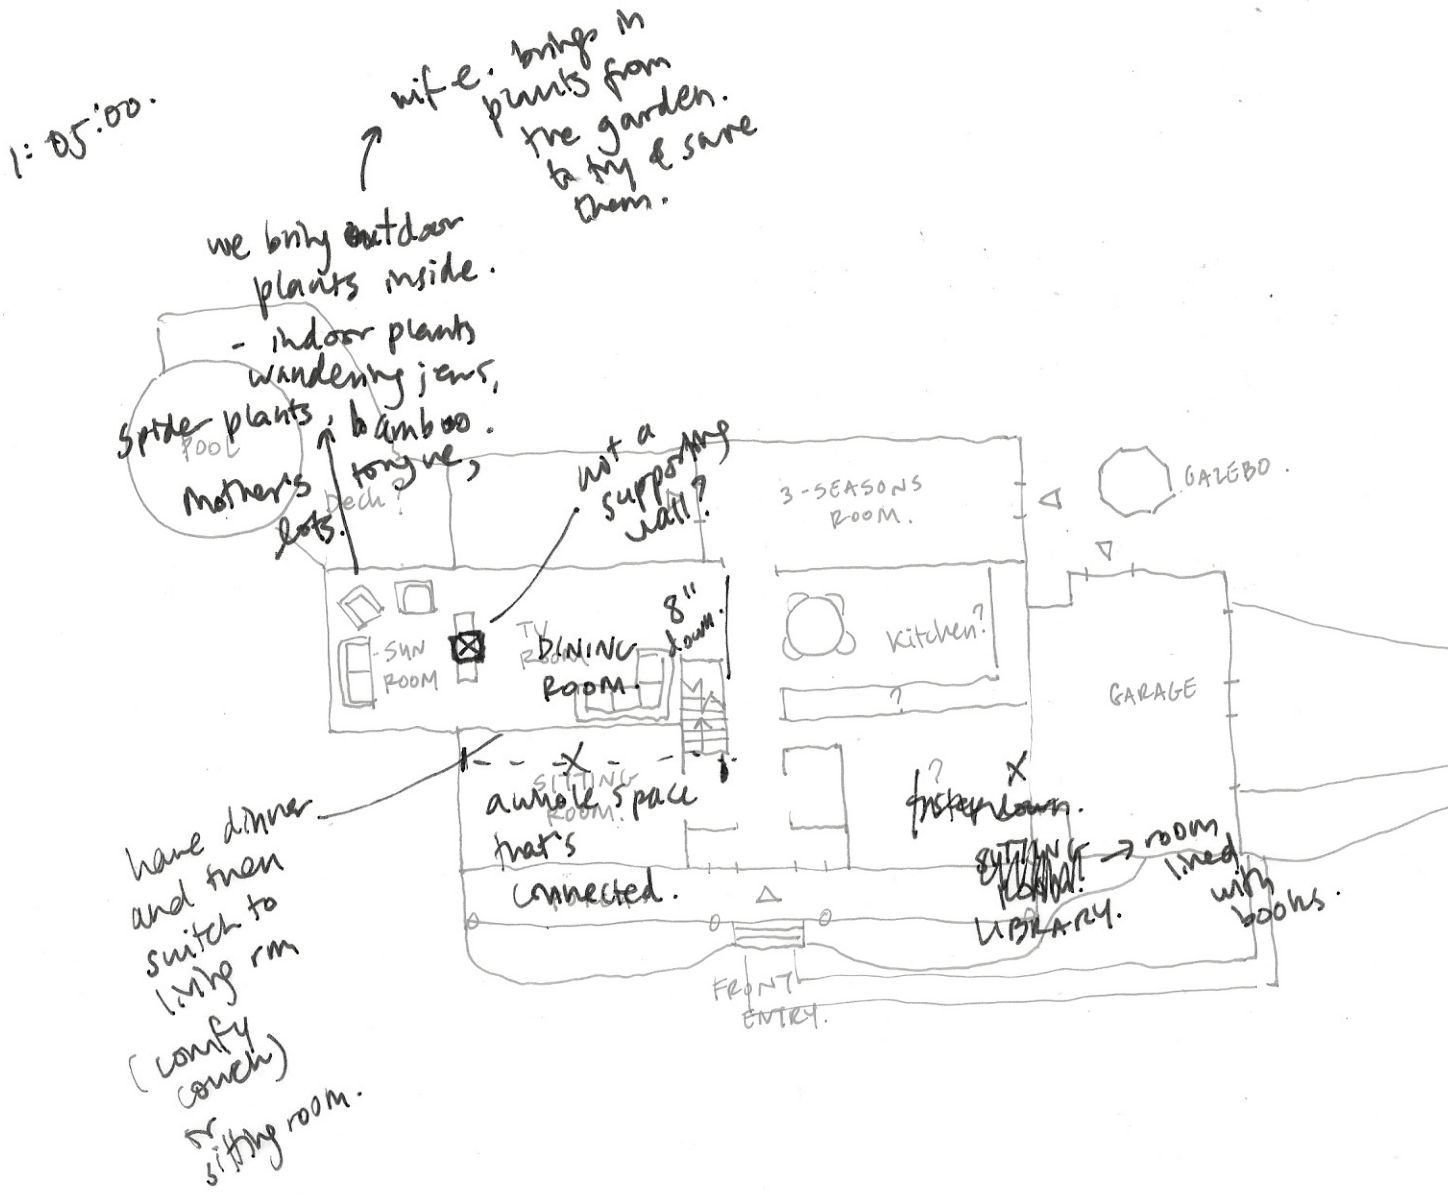 1:05:00.
wife. brings in
plants from
the garden.
to try & save
them.
we bring outdoor
plants inside.
- indoor plants
wandering jews,
spider plants, bamboo.
POOL
tongue,
Mother's
Deck?
lots.
not a
supporting
wall?
3-SEASONS
ROOM.
GAZEBO.
8"
down.
SUN
ROOM
TV
ROOM
DINING
ROOM.
Kitchen?
?
GARAGE
SITTING
ROOM.
a whole space
that's
connected.
?
X
LIBRARY.
→ room
lined
with
books.
have dinner
and then
switch to
living rm
(comfy
couch)
or
sitting room.
FRONT
ENTRY.